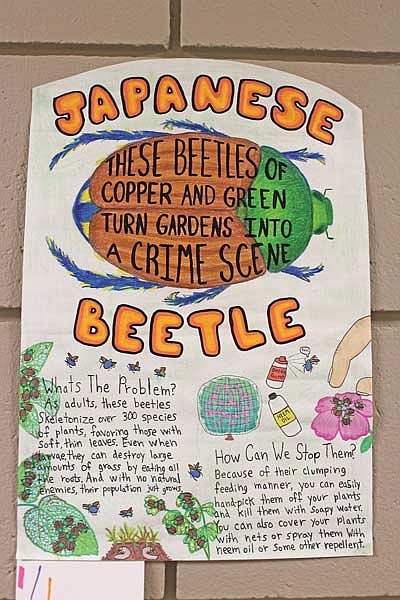 JAPANESE
THESE BEETLES OF
COPPER AND GREEN
TURN GARDENS INTO
A CRIME SCENE
BEETLE
Whats The Problem?
As adults, these beetles
Skeletonize over 300 species
of plants, favoring those with
soft, thin leaves. Even when
larvae, they can destroy large
amounts of grass by eating all
the roots. And with no natural
enemies, their population just grows.
How Can We Stop Them?
Because of their clumping
feeding manner, you can easily
hand-pick them off your plants
and kill them with soapy water.
You can also cover your plants
with nets or spray them with
neem oil or some other repellent.